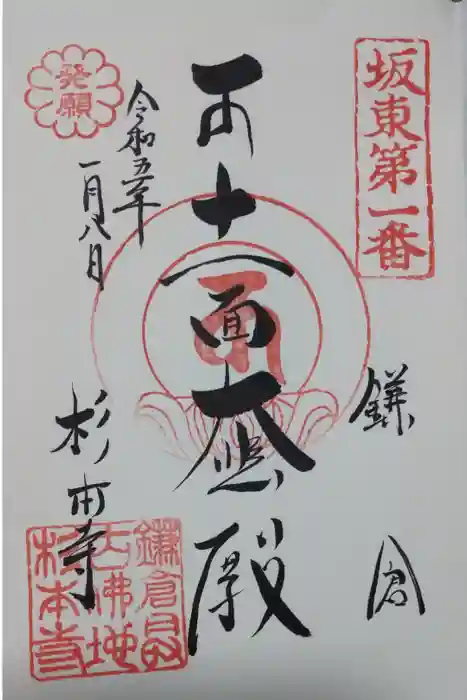 坂東第一番
鎌倉
十一面大悲殿
発願
令和五年
一月八日
杉本寺
鎌倉最
古佛地
杉本寺